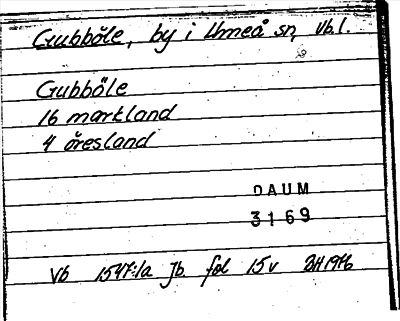 Gubböle, by i Umeå sn, Vb.l.
Gubböle
16 markland
4 öresland
DAUM
3169
Vb 1547:1a Jb fol 15v